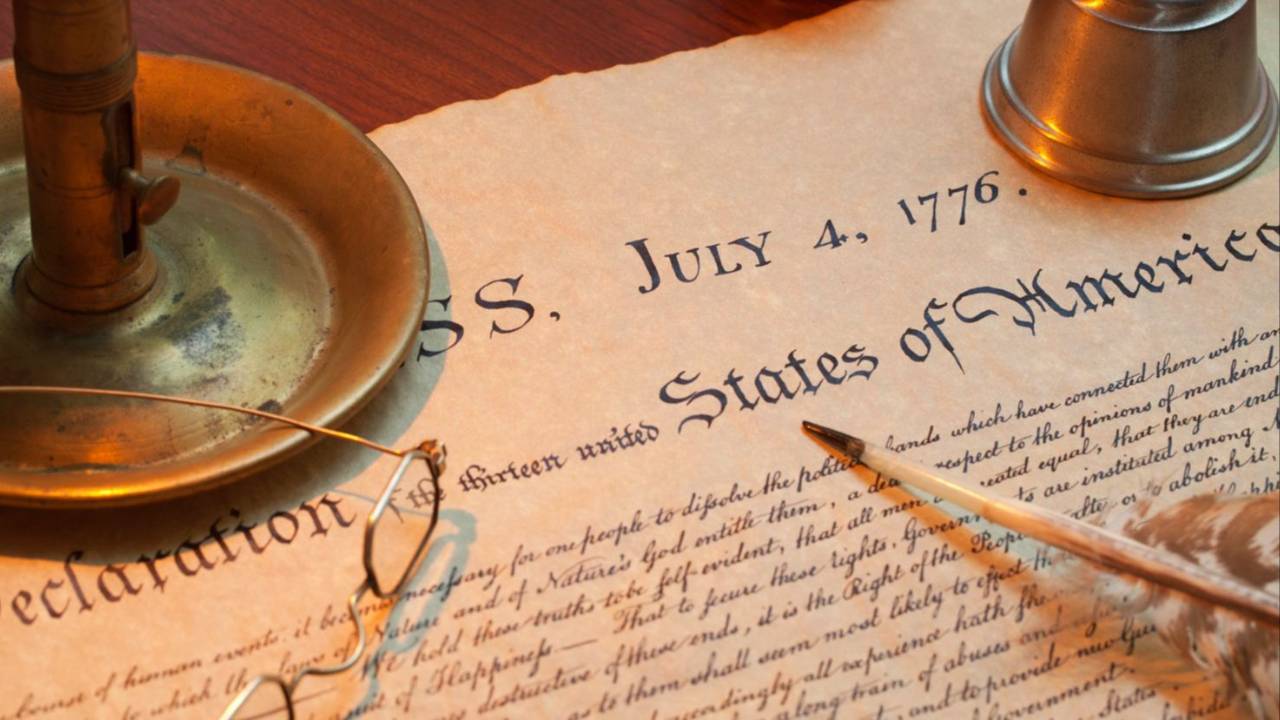 SS, JULY 4, 1776.
eclaration of the thirteen united States of America
ourse of human events, it becomes necessary for one people to dissolve the political bands which have connected them with an
to which the laws of Nature and of Nature's God entitle them, a dec respect to the opinions of mankind
We hold these truths to be self evident, that all men created equal, that they are end
of Happiness.— That to secure these rights, Governm ts are instituted among
destructive of these ends, it is the Right of the People alter or to abolish it,
as to them shall seem most likely to effect th
accordingly all experience hath sh
a long train of abuses and
and to provide new Gu
Government.
States